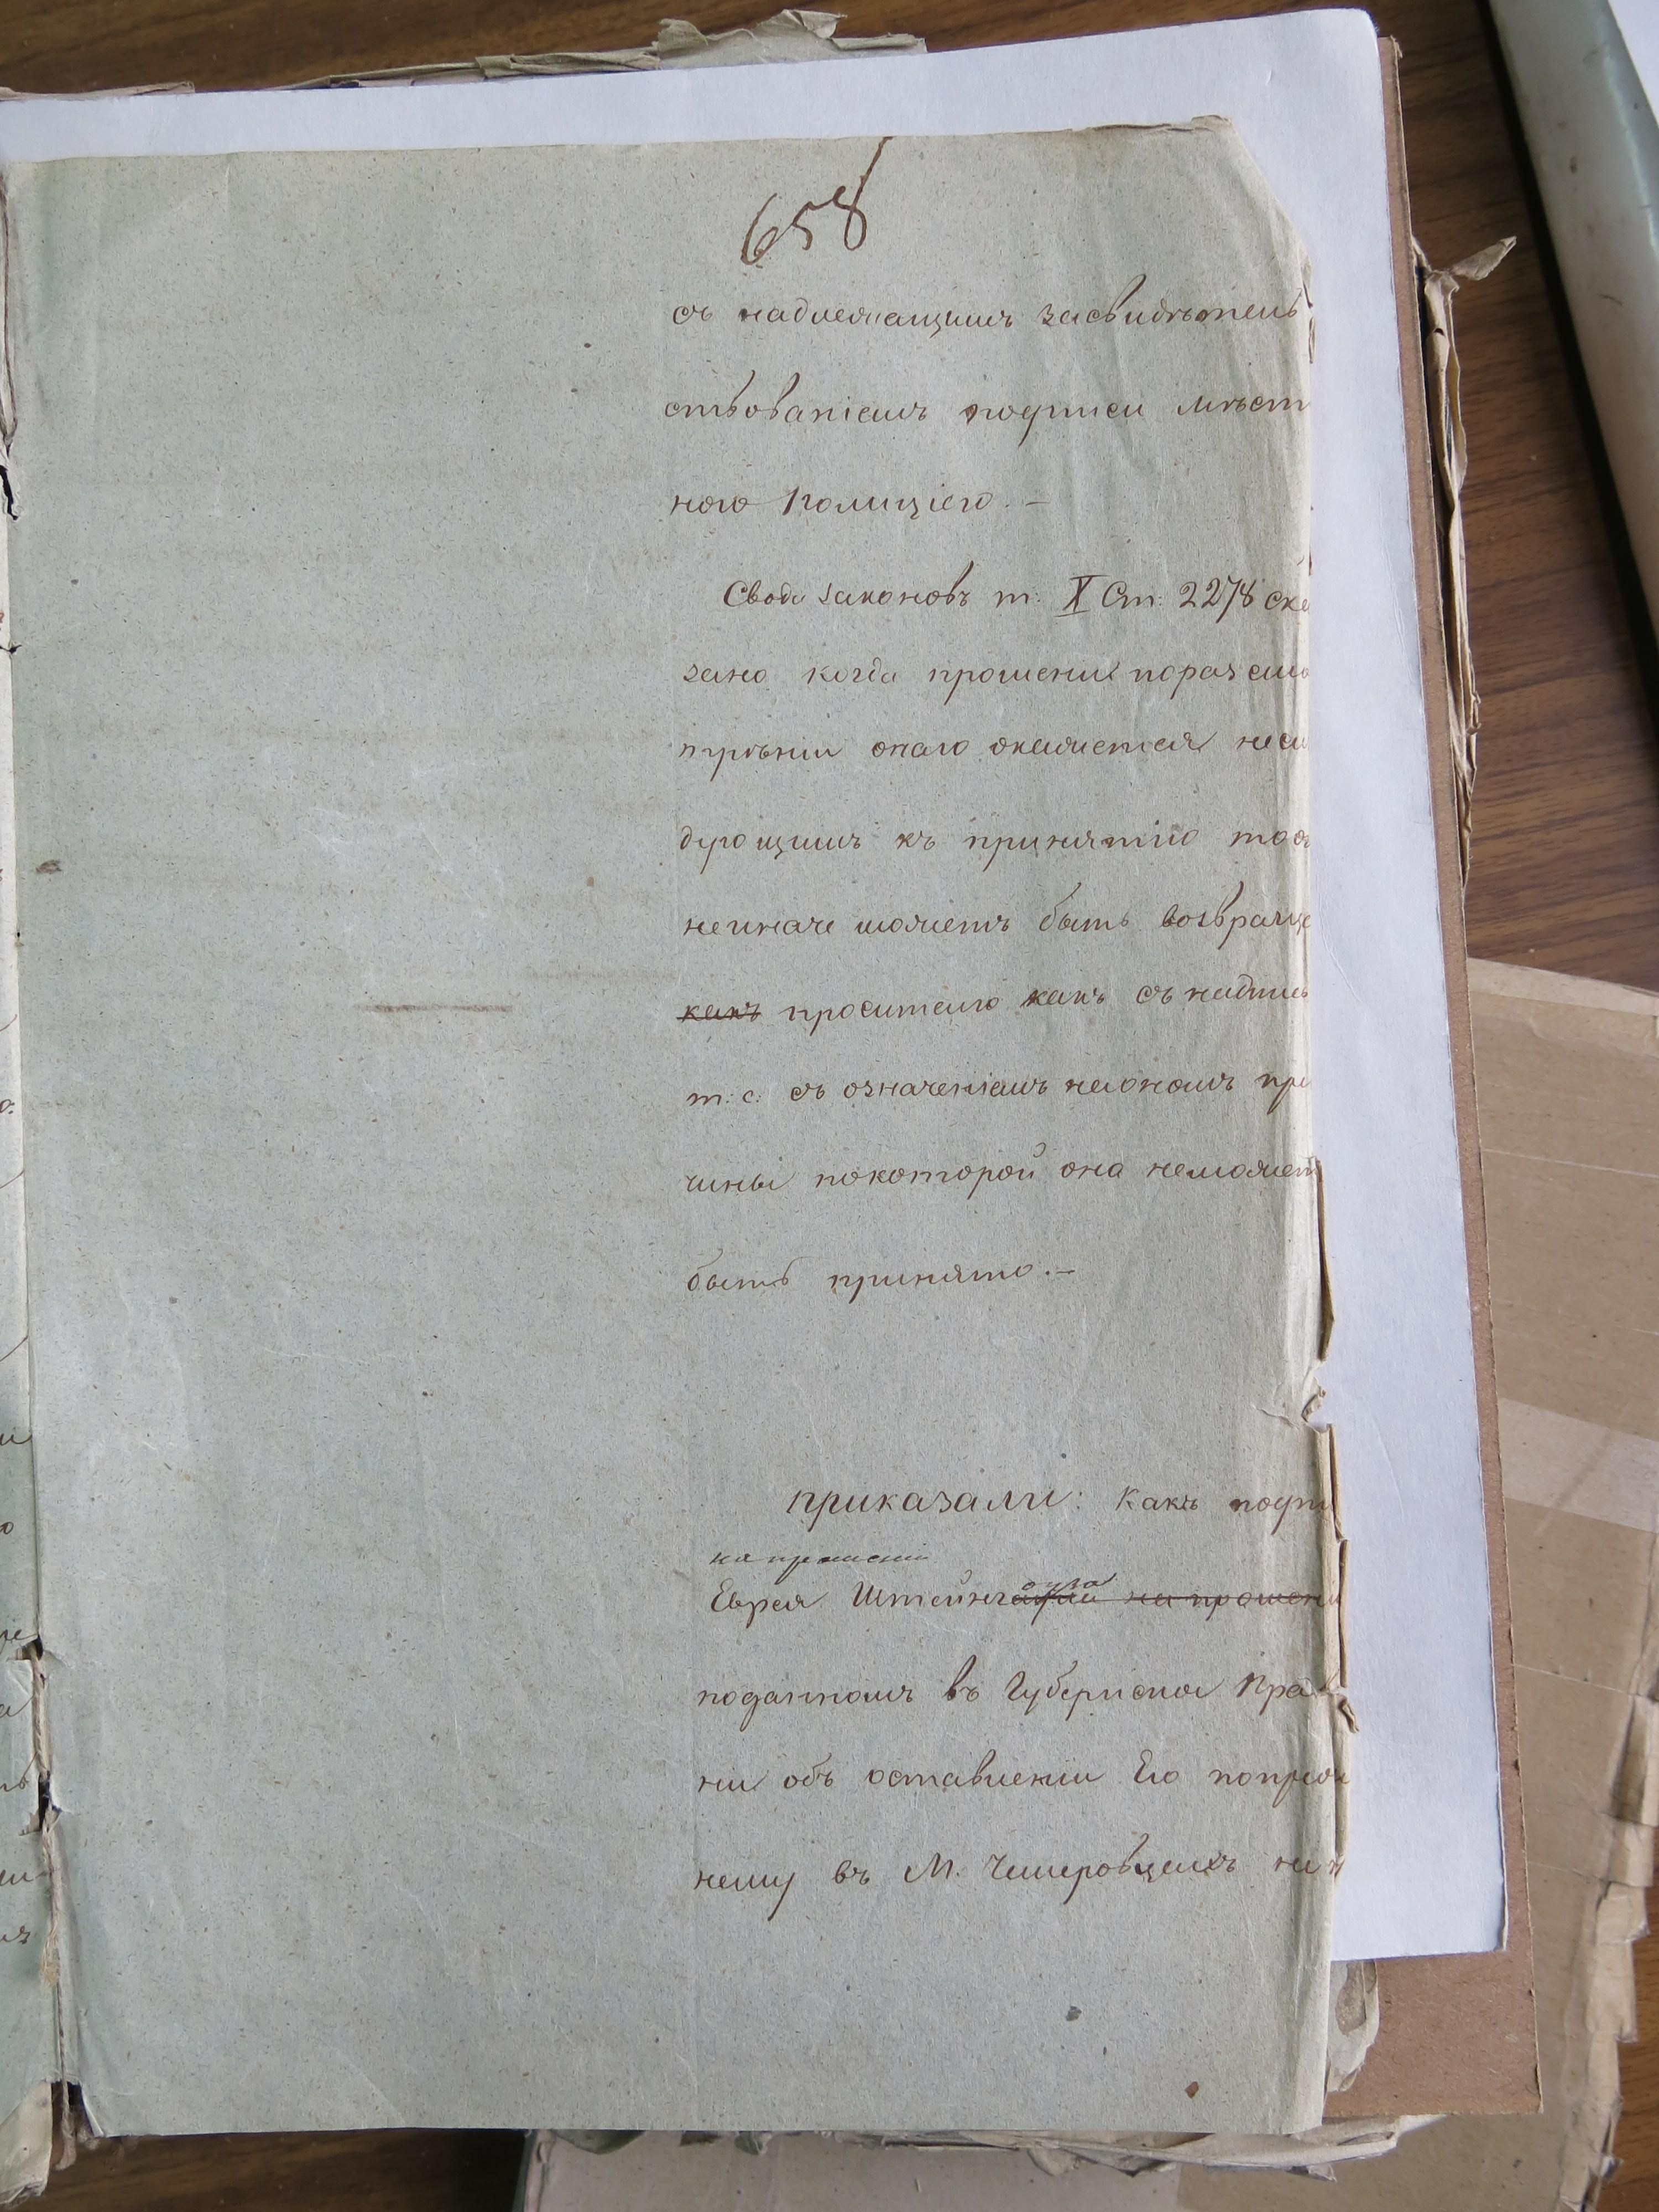 658
съ надлежащимъ засвидѣтель
ствованіемъ подписи мѣст
ною Полиціею. –
Сводъ законовъ т. X Ст. 2278 ска
зано когда прошеніе поразсмо
трѣніи онаго окажется неслѣ
дующимъ къ принятію то
неиначе можетъ быть возвраще
какъ просителю какъ съ надпись
т: е: съ означеніемъ наономъ при
чины покоторой оно неможет
быть принято. –
приказали: Какъ подпи
на прошеніи
Еврея Штейнга на прошени
поданномъ въ Губернское Прав
ніи объ оставленіи Его попреж
нему въ М. Чемеровцахъ не